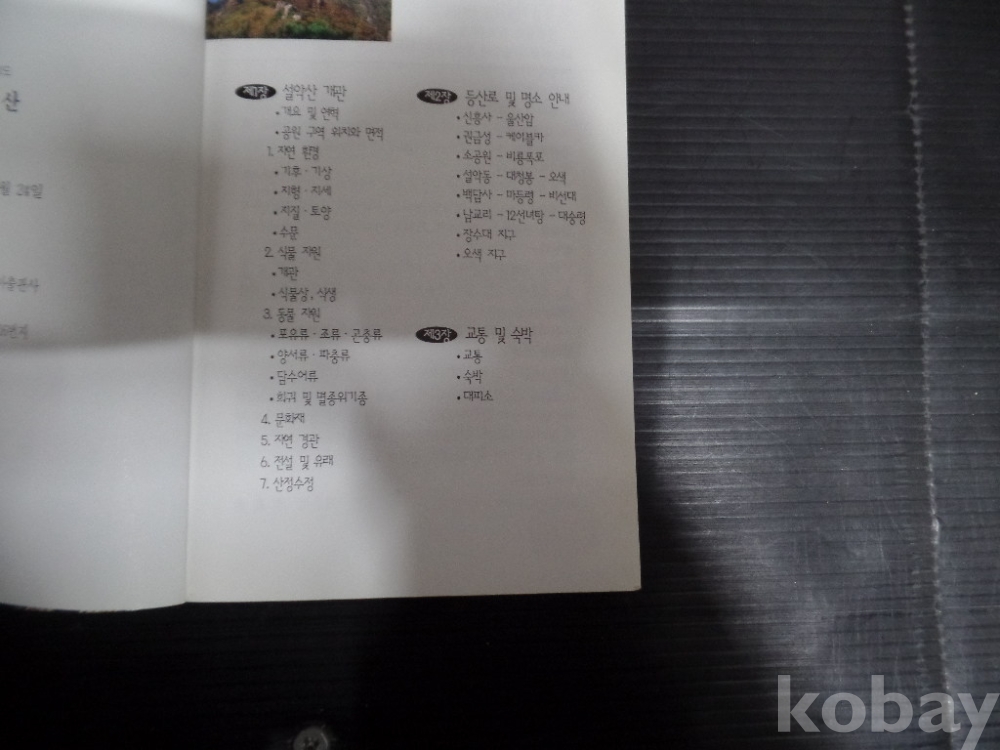 산
월 28일
제1장 설악산 개관
• 개요 및 연혁
• 공원 구역 위치와 면적
1. 자연 현황
• 기후 · 기상
• 지형 · 지세
• 지질 · 토양
• 수문
2. 식물 자원
• 개관
• 식물상, 식생
3. 동물 자원
• 포유류 · 조류 · 곤충류
• 양서류 · 파충류
• 담수어류
• 희귀 및 멸종위기종
4. 문화재
5. 자연 경관
6. 전설 및 유래
7. 산정수정
제2장 등산로 및 명소 안내
• 신흥사 - 울산암
• 권금성 - 케이블카
• 소공원 - 비룡폭포
• 설악동 - 대청봉 - 오색
• 백담사 - 마등령 - 비선대
• 남교리 - 12선녀탕 - 대승령
• 장수대 지구
• 오색 지구
제3장 교통 및 숙박
• 교통
• 숙박
• 대피소
kobay